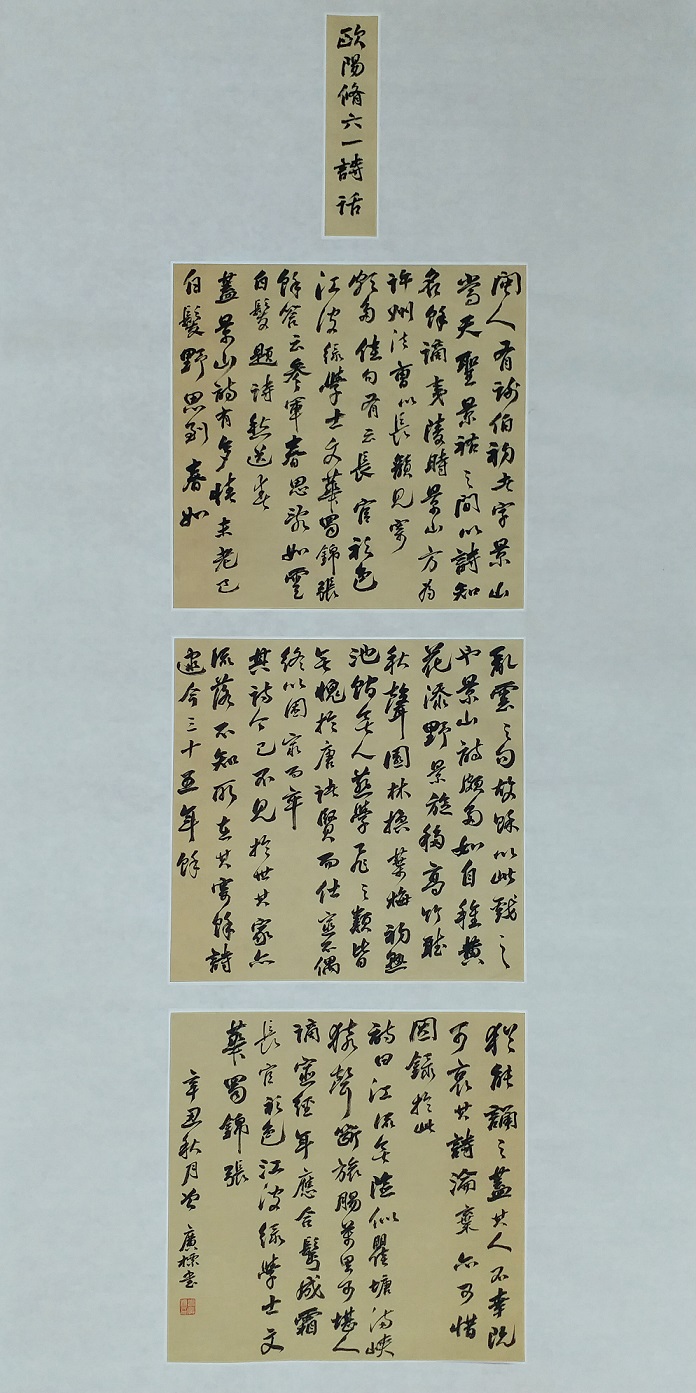 歐陽脩六一詩话
閩人有謝伯初者字景山
當天聖景祐之間以詩知
名餘謫夷陵時景山方為
許州法曹以長韻見寄
頗多佳句有云長官衫色
江波綠學士文華蜀錦張
餘答云參軍春思亂如雲
白髮題詩愁送春
蓋景山詩有多情未老已
白髮野思到春如
亂雲之句故餘以此戲之
也景山詩頗多如自種黃
花添野景旋移高竹聽
秋聲園林換葉梅初熟
池館無人燕學飛之類皆
無愧於唐諸賢而仕宦不偶
終以困窮而卒
其詩今已不見於世其家亦
流落不知所在其寄餘詩
逮今三十五年餘
猶能誦之蓋其人不幸既
可哀其詩淪棄亦可惜
因錄於此
詩曰江流無險似瞿塘滿峽
猿聲斷旅腸萬里可堪人
謫宦經年應合鬢成霜
長官衫色江波綠學士文
華蜀錦張
辛丑秋月 廣標書